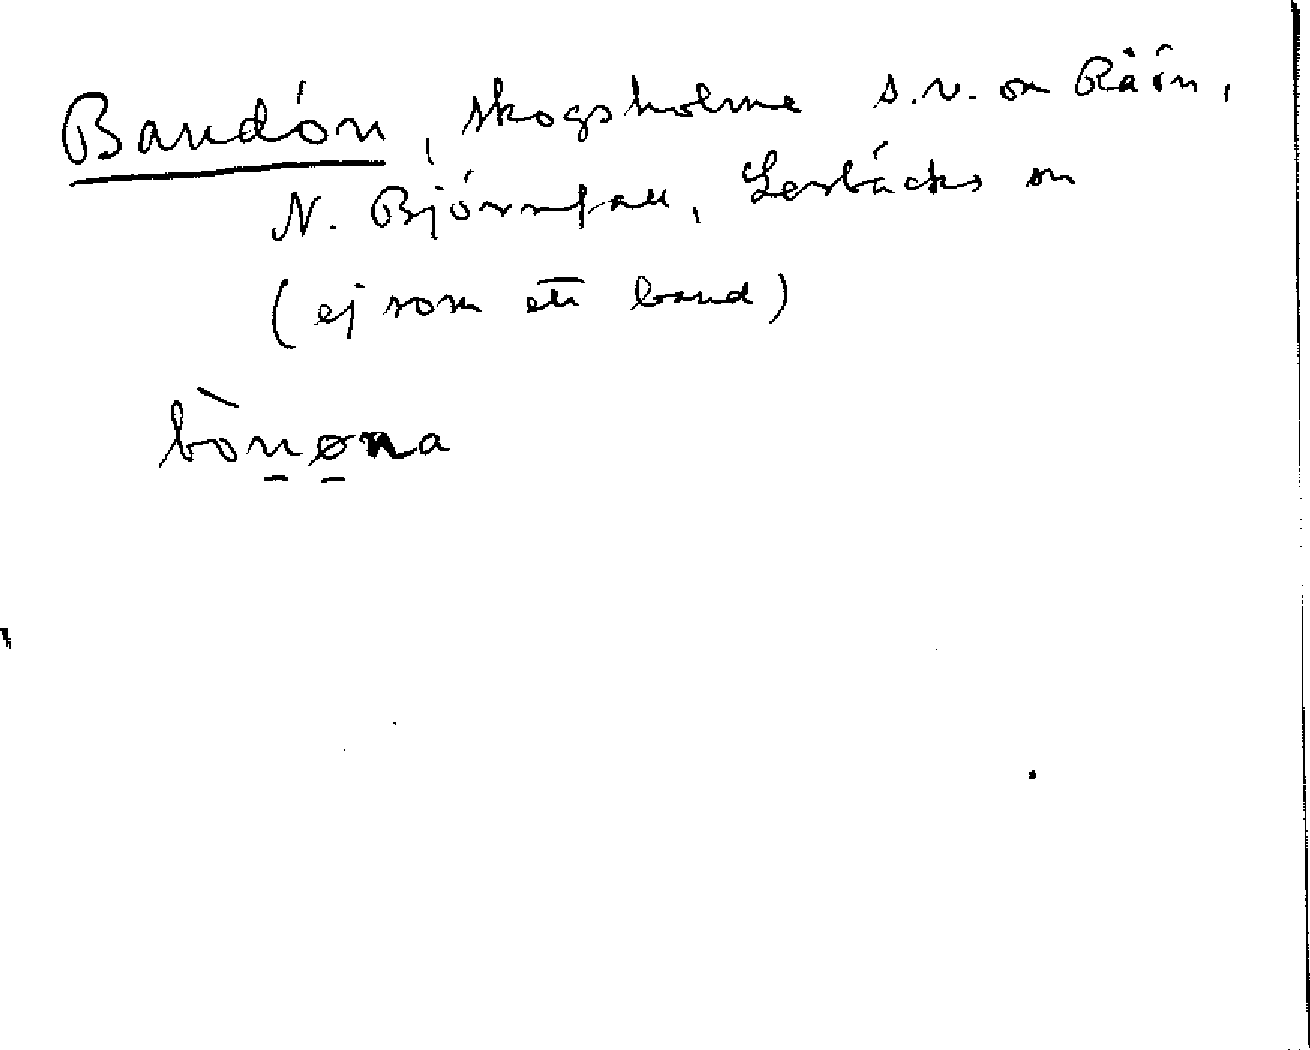 Bandön, skogsholme s.v. om Råön,
N. Björnfall, Lerbäcks sn
(ej som ett band)
bònøna